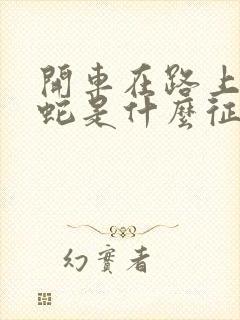 開車在路上
蛇是什麼征
幻實者